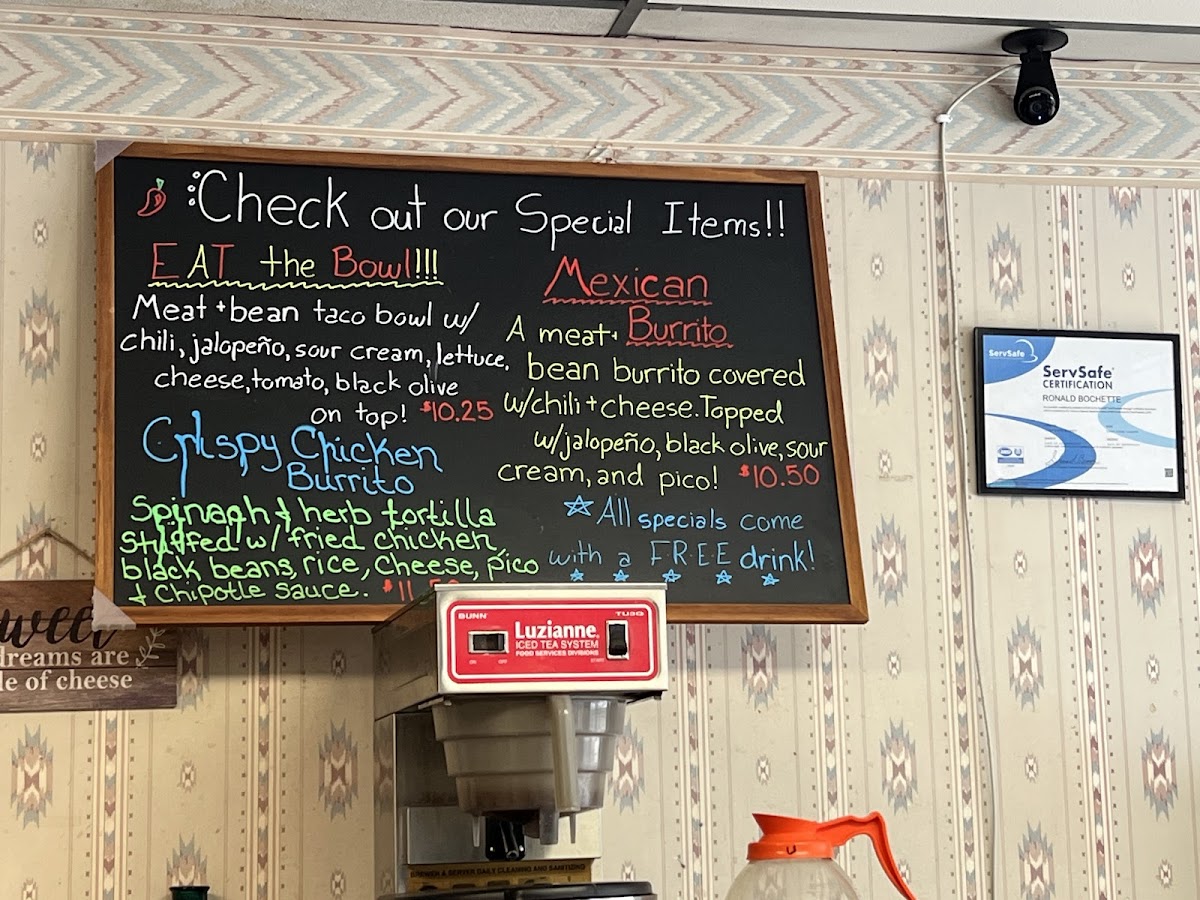 Check out our Special Items!!
EAT the Bowl!!!
Meat + bean taco bowl w/
chili, jalopeño, sour cream, lettuce,
cheese, tomato, black olive
on top! $10.25
Crispy Chicken
Burrito
Spinach & herb tortilla
stuffed w/ fried chicken,
black beans, rice, cheese, pico
& Chipotle sauce.
Mexican
Burrito
A meat +
bean burrito covered
w/chili + cheese. Topped
w/jalopeño, black olive, sour
cream, and pico! $10.50
All specials come
with a FREE drink!
ServSafe
ServSafe
CERTIFICATION
RONALD BOCHETTE
dreams are
le of cheese
BUNN TU3Q
Luzianne
ICED TEA SYSTEM
FOOD SERVICES DIVISIONS
BREWER & SERVER DAILY CLEANING AND SANITIZING